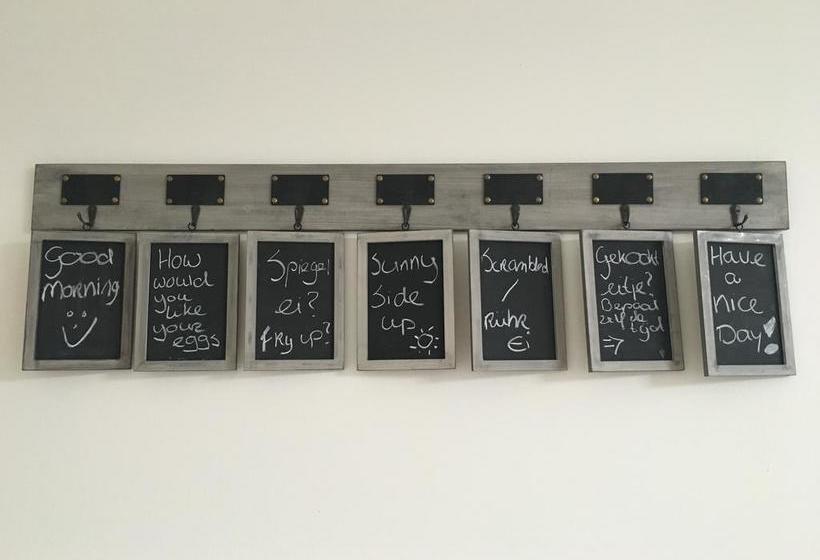 Good
morning
How
would
you
like
your
eggs
Spiegel
ei?
fry up?
Sunny
Side
up
Scrambled
/
Rühr
Ei
Gekookt
eitje?
Bepaal
zelf de
tijd
=>
Have
a
nice
Day!